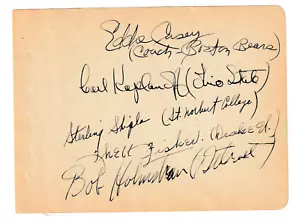 Eddie Casey
(Coach-Boston Bears)
Carl Kaplanoff (Ohio State)
Sterling (St. Norbert College)
Fisher.
Bob (Detroit)